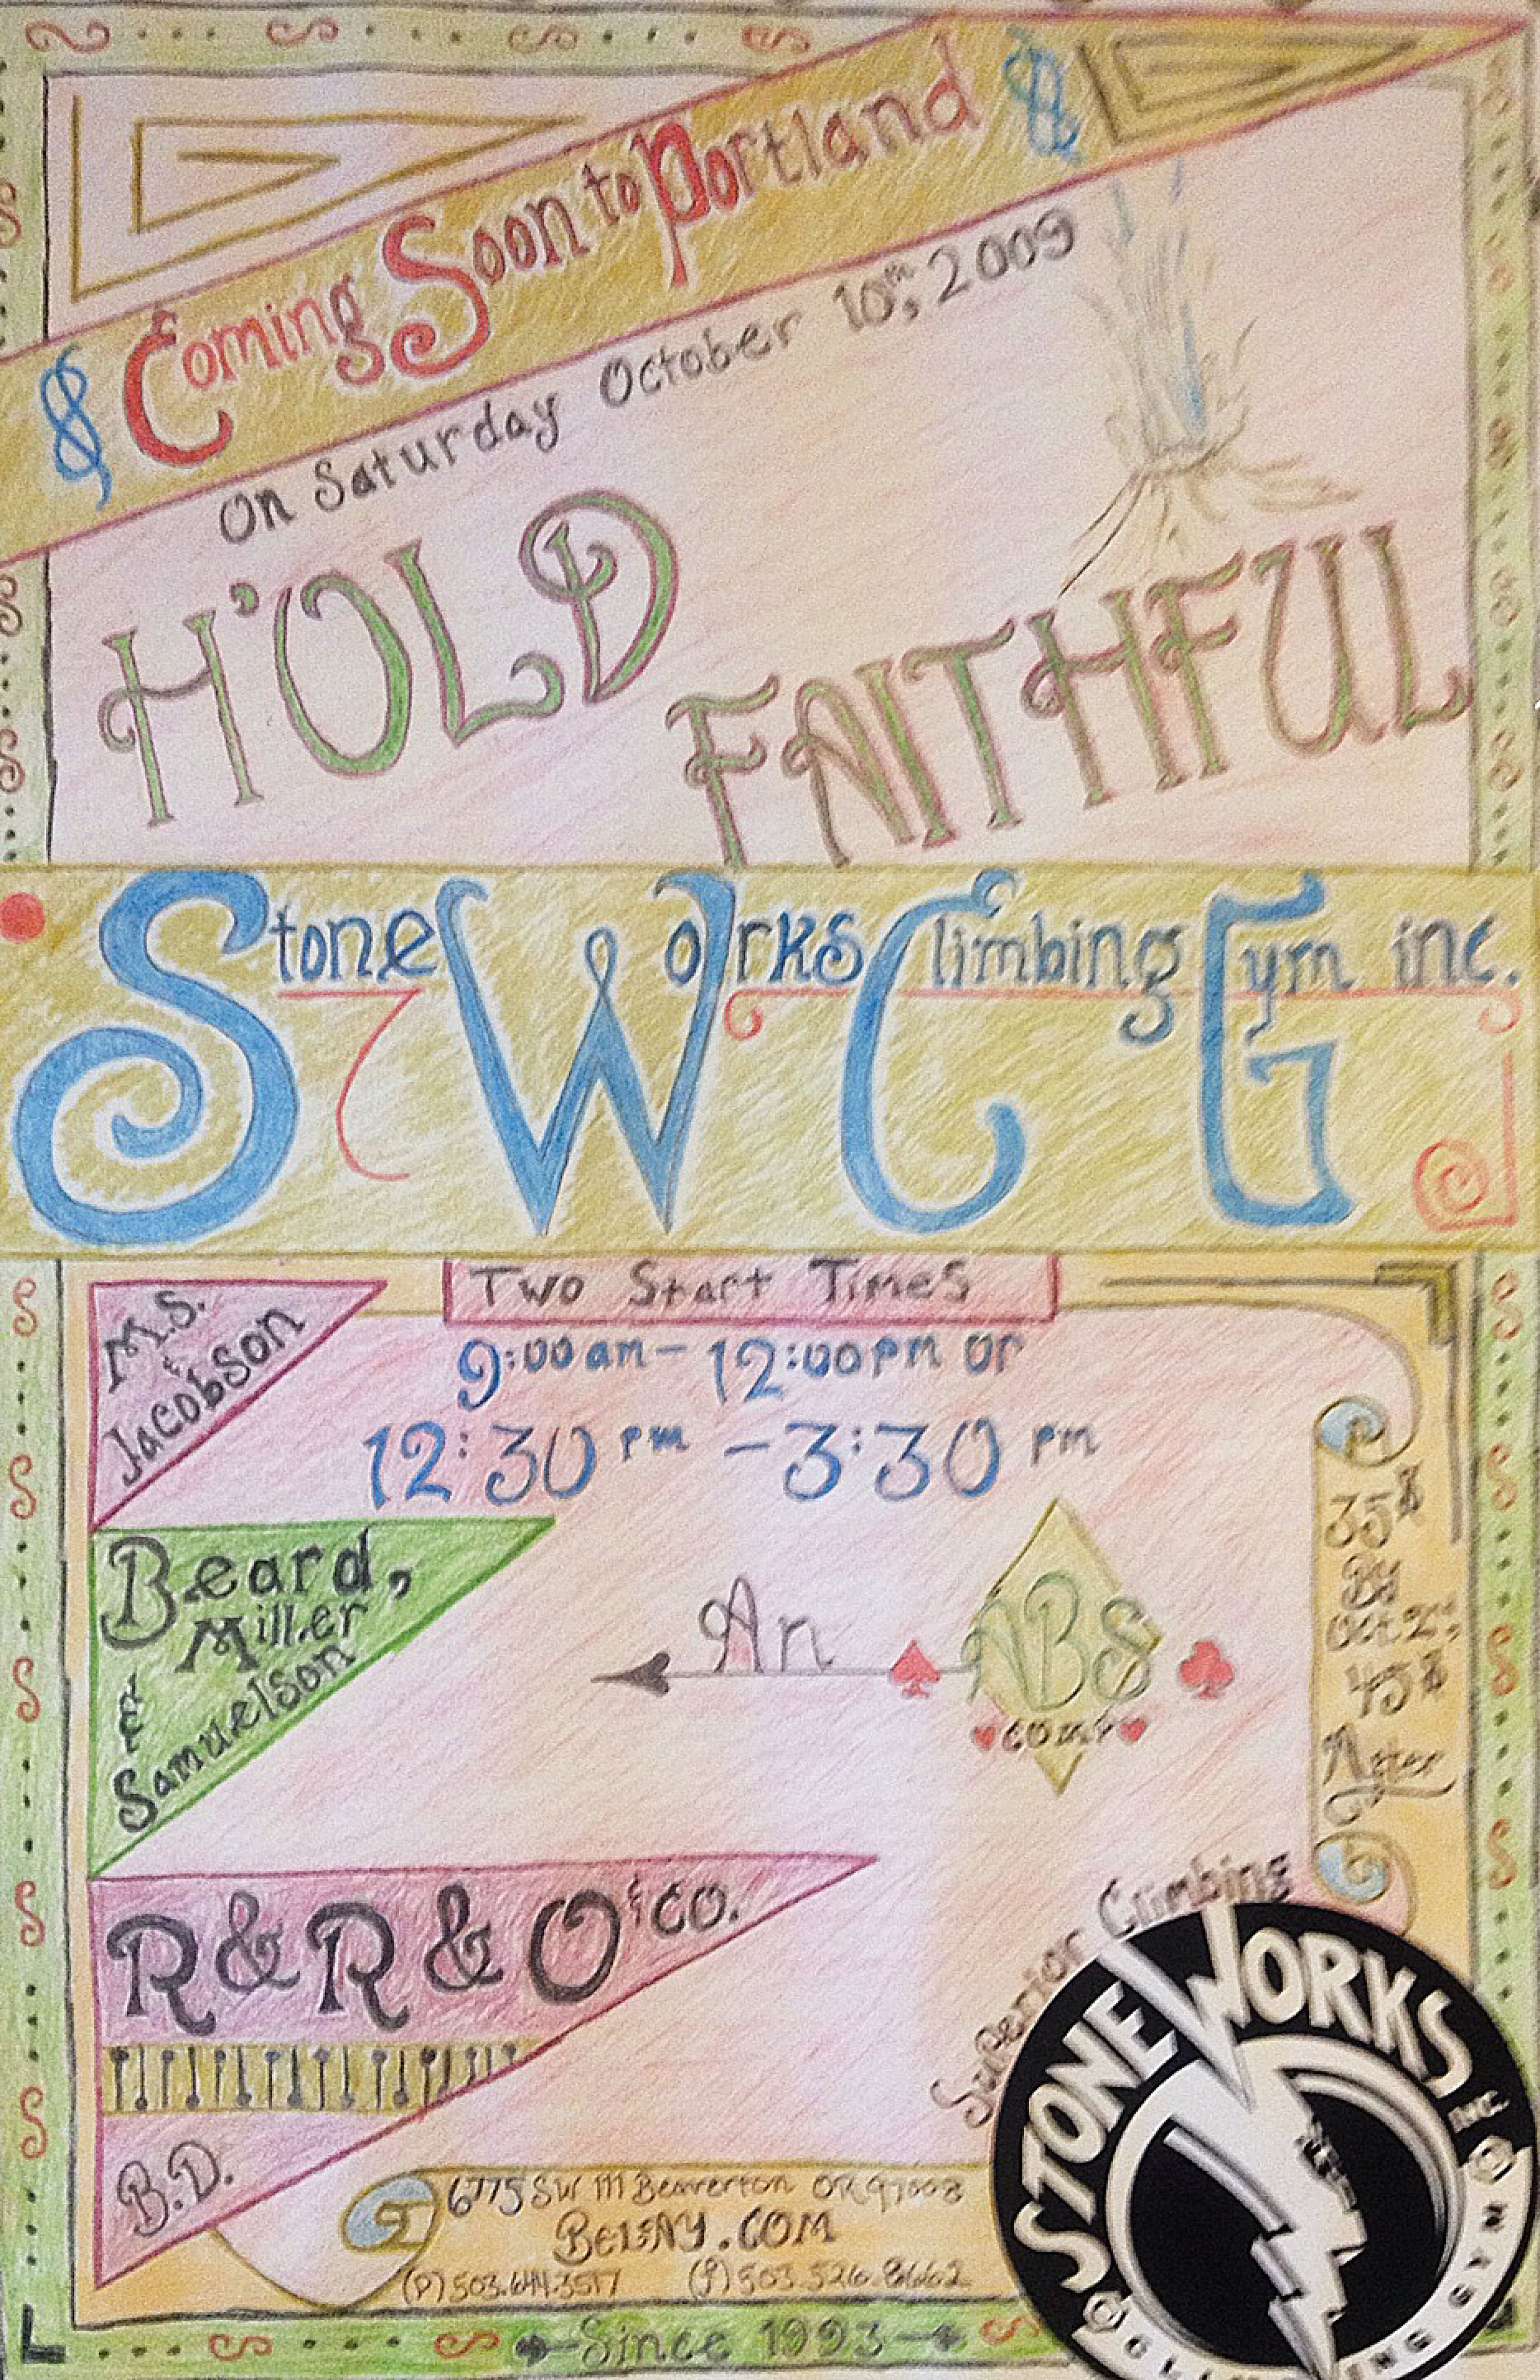 & Coming Soon to Portland &
On Saturday October 10th, 2009
H'OLD
FAITHFUL
Stone Works Climbing Gym inc.
Two Start Times
9:00am-12:00pm or
12:30pm-3:30pm
M.S.
&
Jacobson
Beard,
Miller
&
Samuelson
An
ABS
comp
35$
By
Oct 2nd
45$
After
R&R&O&co.
B.D.
Superior Climbing
STONEWORKS
INC.
CLIMBING GYM
6775 SW 111 Beaverton OR 97008
BELAY.COM
(P)503.644.3517 (f)503.526.8662
Since 1993